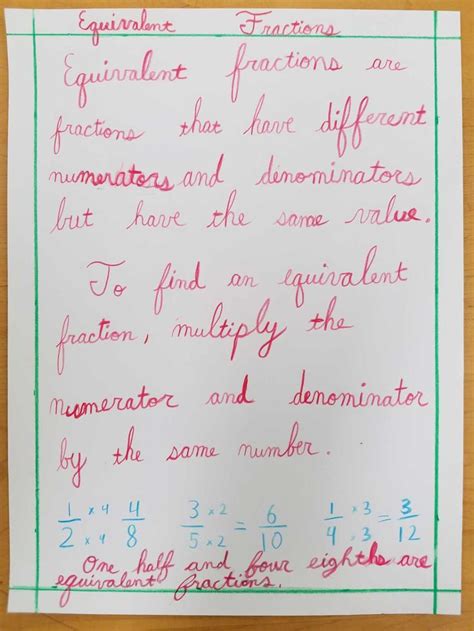 Equivalent Fractions
Equivalent fractions are
fractions that have different
numerators and denominators
but have the same value.
To find an equivalent
fraction, multiply the
numerator and denominator
by the same number.
1/2 ×4 ×4 4/8 3/5 ×2 ×2 = 6/10 1/4 ×3 ×3 = 3/12
One half and four eighths are
equivalent fractions.